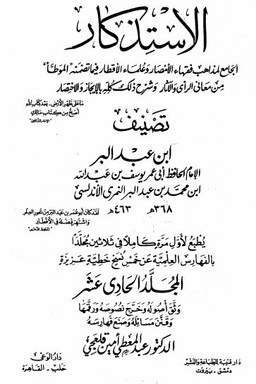 الاستذكار
الجامع لمذاهب فقهاء الأمصار وعلماء الأقطار فيما تضمنه الموطأ
من معاني الرأي والآثار وشرح ذلك كله بالإيجاز والاختصار
ما على ظهر الأرض، بعد كتاب الله
أصح من كتاب مالك
تصنيف
ابن عبد البر
الإمام الحافظ أبي عمر يوسف بن عبد الله
ابن محمد بن عبد البر النمري الأندلسي
٣٦٨هـ ٤٦٣هـ
يطبع لأول مرة كاملاً في ثلاثين مجلداً
بالفهارس العلمية عن خمس نسخ خطية عزيزة
المجلد الحادي عشر
وثق أصوله وخرج نصوصه ورقمها
وقنن مسائله وصنع فهارسه
الدكتور عبد المعطي أمين قلعجي
دار قتيبة للطباعة والنشر
دمشق - بيروت
دار الوعي
حلب - القاهرة